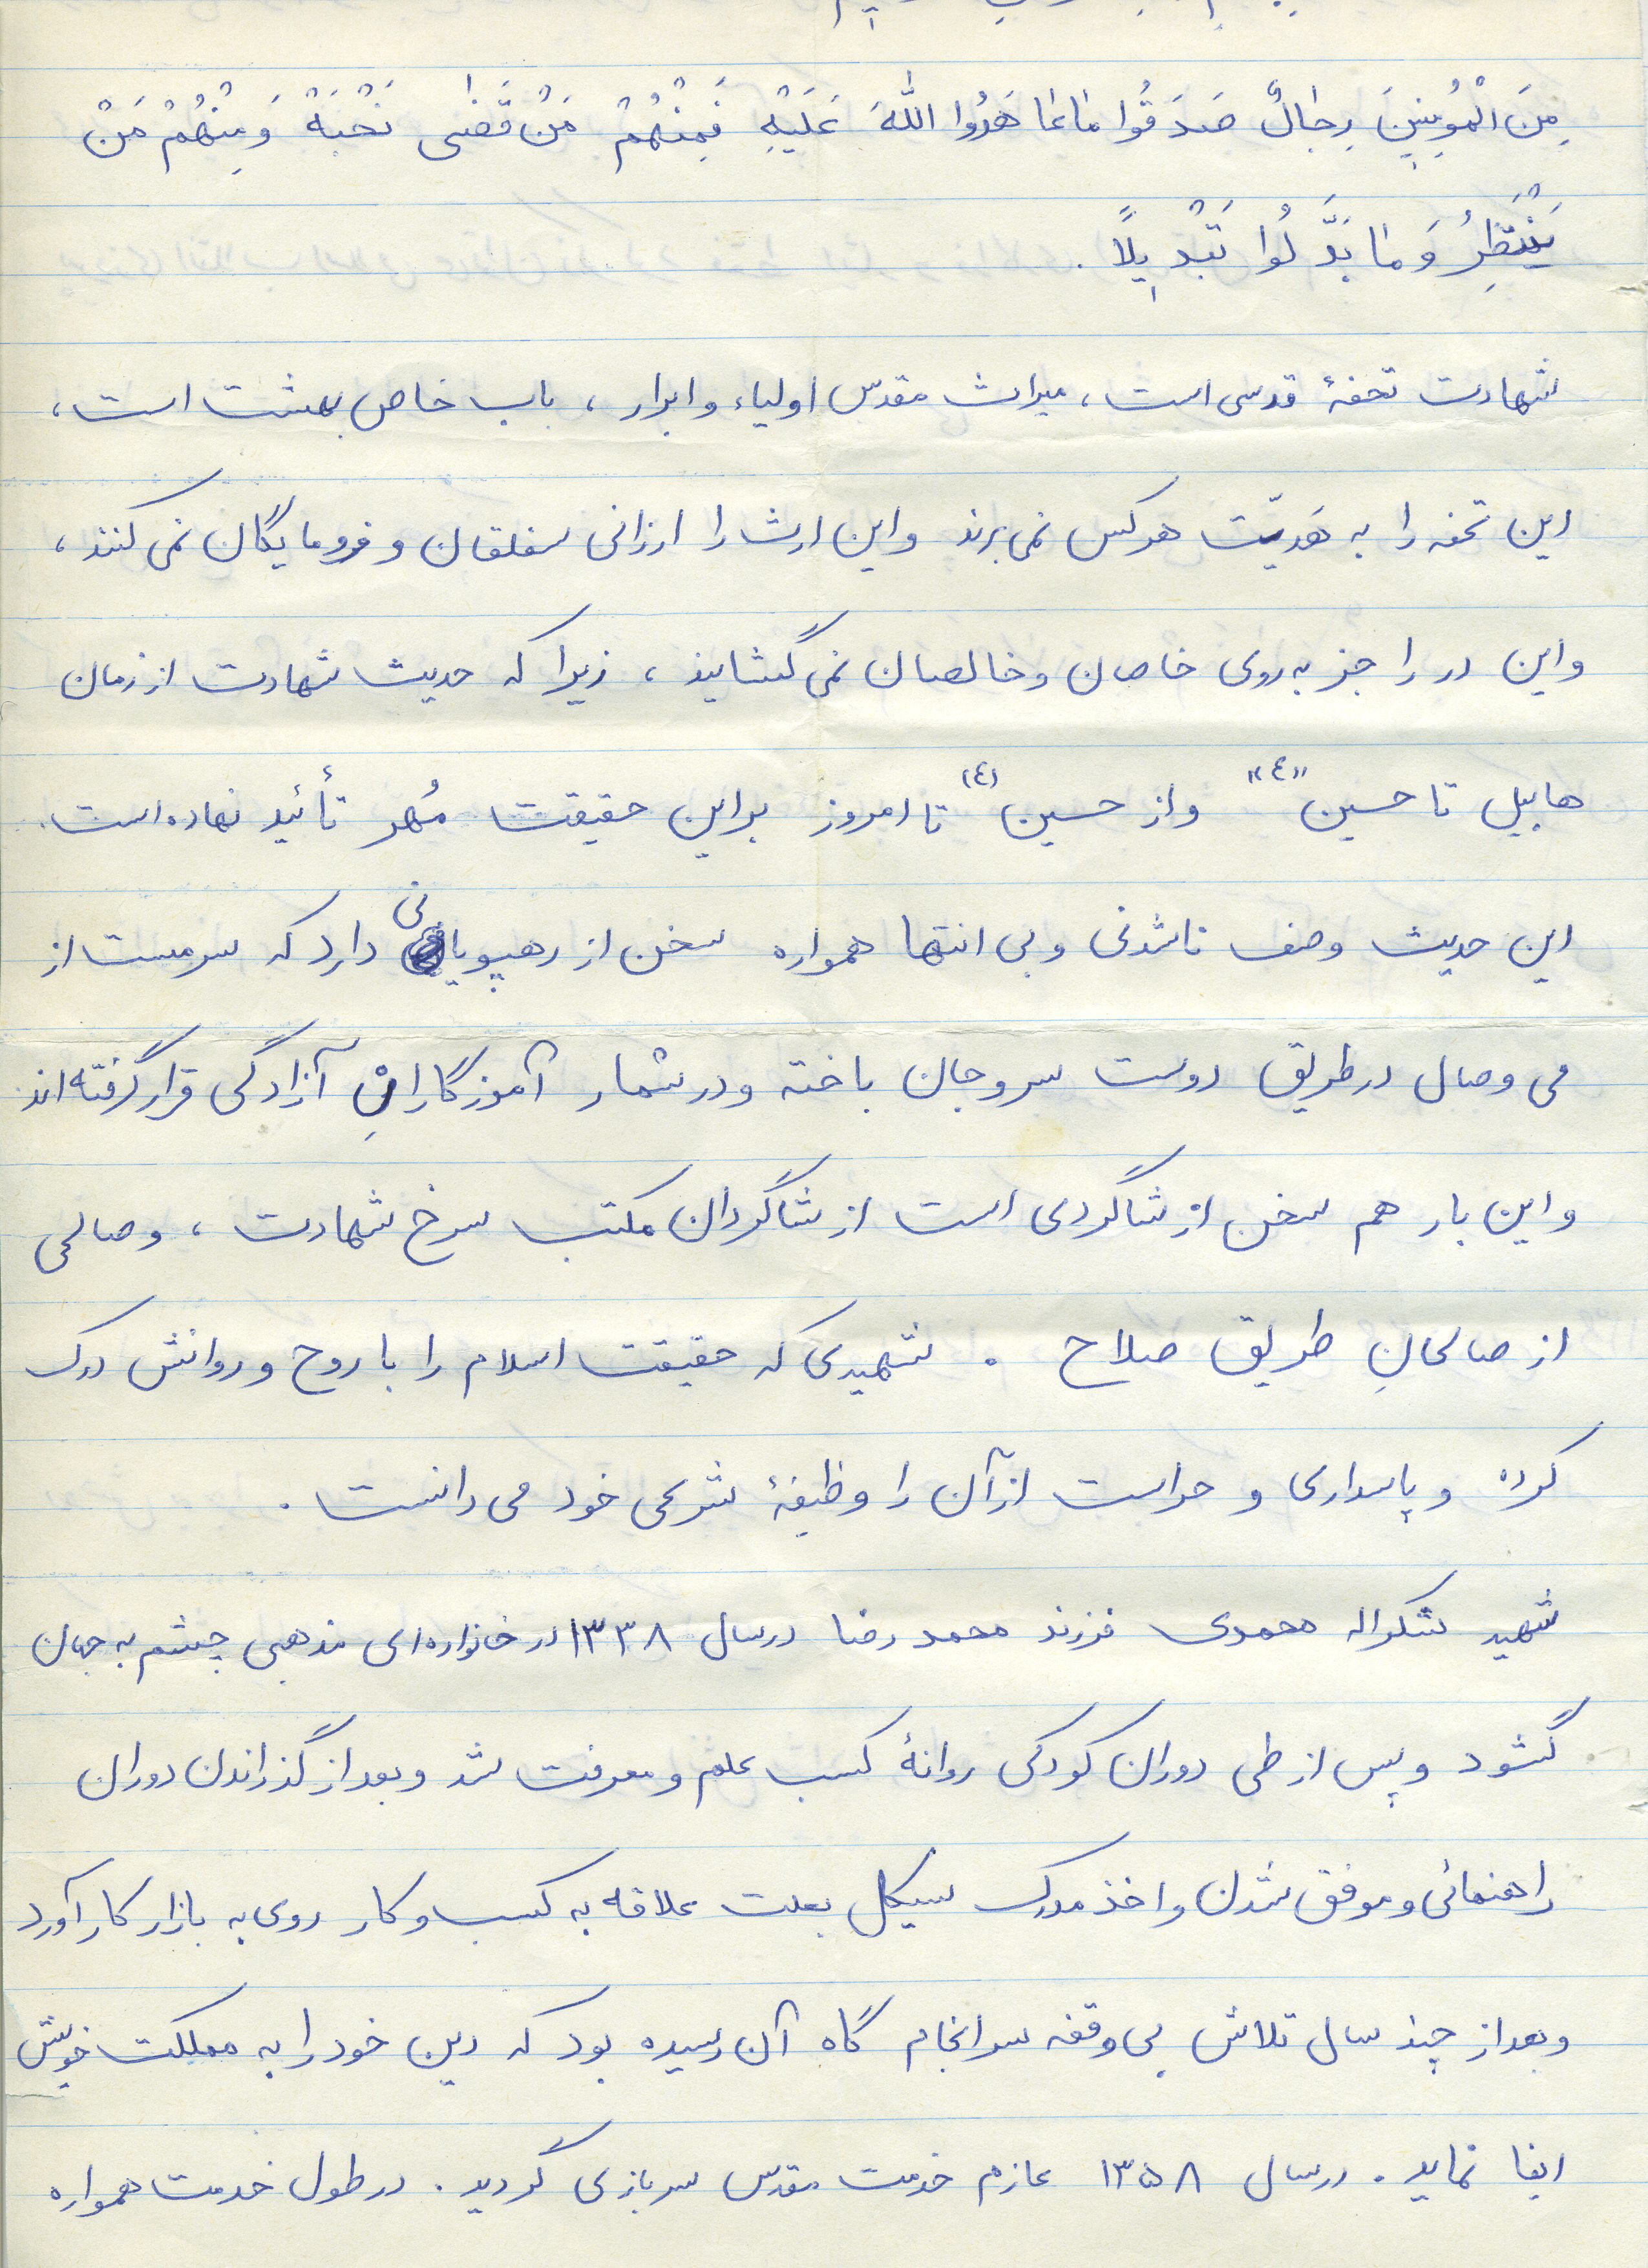 مِنَ الْمُؤمِنينَ رِجالٌ صَدَقُوا ماعاهَدُوا اللّهَ عَلَيْهِ فَمِنْهُمْ مَنْ قَضى نَحْبَهُ وَ مِنْهُمْ مَنْ
يَنْتَظِرُ وَ ما بَدَّلُوا تَبْديلاً .
شهادت تحفهٔ قدسی است ، میراث مقدس اولیاء و ابرار ، باب خاص بهشت است ،
این تحفه را به هَدیّت هرکس نمی برند و این ارث را ارزانی سفلقان و فرومایگان نمی کنند ،
و این در را جز به روی خاصان و خالصان نمی گشایند ، زیرا که حدیث شهادت از زمان
هابیل تا حسین "ع" و از حسین (ع) تا امروز بر این حقیقت مُهر تأئید نهاده است .
این حدیث وصف ناشدنی و بی انتها همواره سخن از رهپویانی دارد که سرمست از
می وصال در طریق دوست سر و جان باخته و در شمار آموزگارانِ آزادگی قرار گرفته اند .
و این بار هم سخن از شاگردی است از شاگردان مکتب سرخ شهادت ، و صالحی
از صالحانِ طریق صلاح . شهیدی که حقیقت اسلام را با روح و روانش درک
کرده و پاسداری و حراست از آن را وظیفهٔ شرعی خود می دانست .
شهید شکراله محمدی فرزند محمد رضا در سال ۱۳۳۸ در خانواده ای مذهبی چشم به جهان
گشود و پس از طی دوران کودکی روانهٔ کسب علم و معرفت شد و بعد از گذراندن دوران
راهنمائی و موفق شدن و اخذ مدرک سیکل بعلت علاقه به کسب و کار روی به بازار کار آورد
و بعد از چند سال تلاش بی وقفه سرانجام گاه آن رسیده بود که دین خود را به مملکت خویش
ایفا نماید . در سال ۱۳۵۸ عازم خدمت مقدس سربازی گردید . در طول خدمت همواره